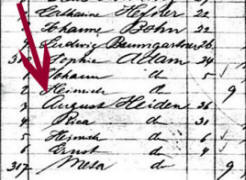 Catharine Hefner 22
Johanne Bohn 22
Ludwig Baumgardner 26
Sophie Adam 24
Johann do 5
2 Heinrich do 9
3 August Heiden 36
4 Rica do 31
5 Heinrich do 6
6 Ernst do 4
317 Mesa do 9